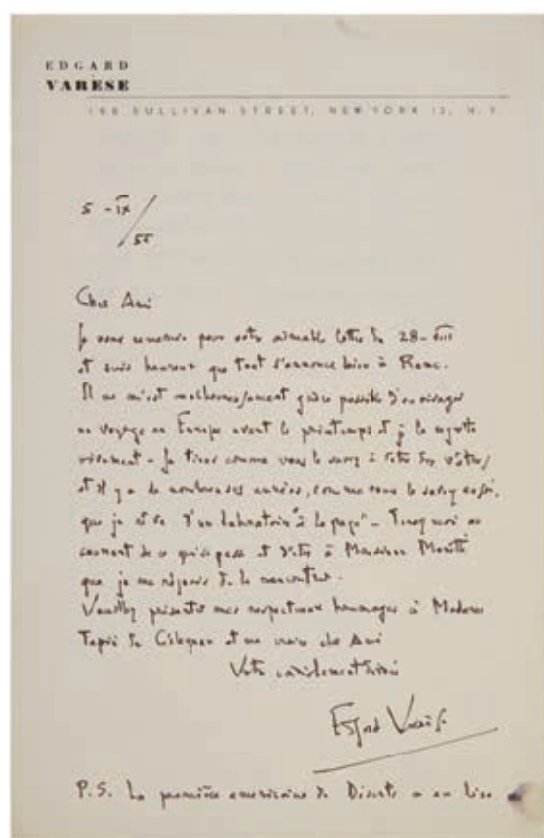 EDGARD
VARÈSE
188 SULLIVAN STREET, NEW YORK 12, N. Y.
5 - IX / 55
Cher Ami
Je vous remercie pour votre aimable lettre du 28-VIII
et suis heureux que tout s'annonce bien à Rome.
Il ne m'est malheureusement guère possible d'envisager
un voyage en Europe avant le printemps et je le regrette
vivement - Je tiens comme vous le savez à être des vôtres
et il y a de nombreuses années, comme vous le savez aussi,
que je rêve d'un laboratoire "à la page" - Tenez moi au
courant de ce qui se passe et dites à Monsieur
que je me réjouis de le rencontrer.
Veuillez présenter mes respectueux hommages à Madame
Tapié de Céleyran et me croire cher Ami
Votre cordialement dévoué
Edgard Varèse
P.S. La première américaine de Déserts a eu lieu